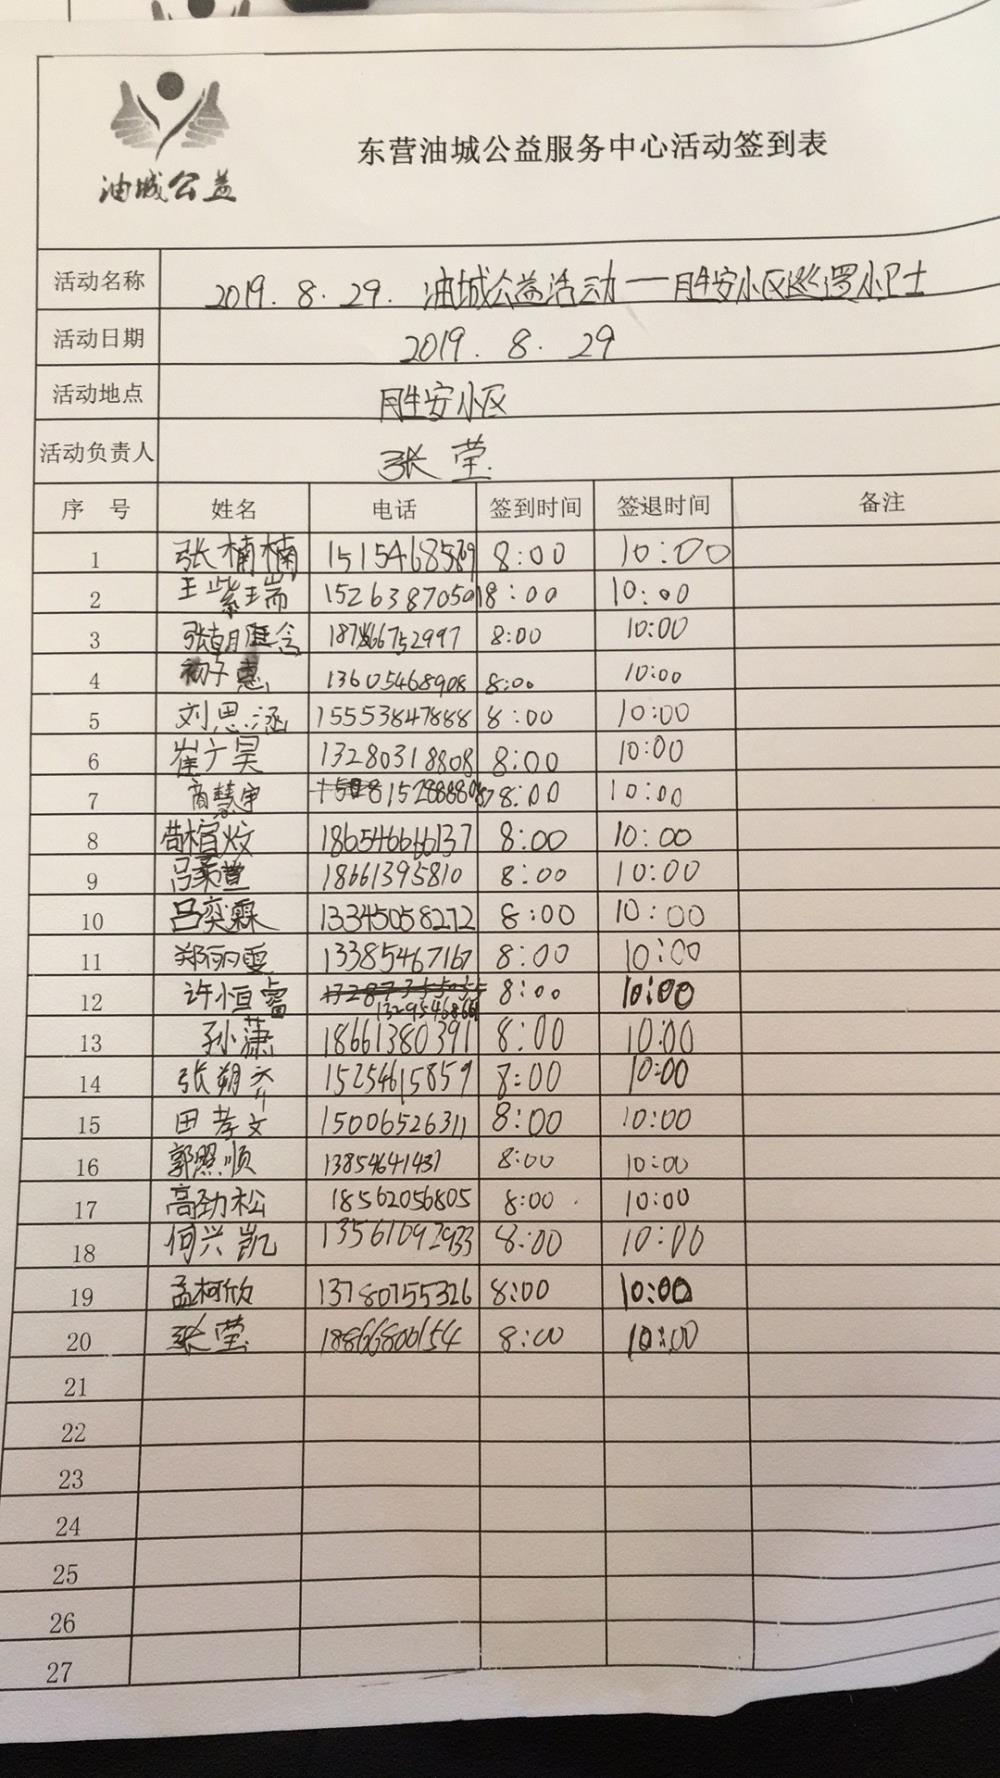 油城公益
东营油城公益服务中心活动签到表
活动名称 2019.8.29. 油城公益活动一胜安小区巡逻小卫士
活动日期 2019.8.29
活动地点 胜安小区
活动负责人 张莹
序号 姓名 电话 签到时间 签退时间 备注
1 张楠楠 8:00 10:00
2 王紫瑞 15263870501 8:00 10:00
3 8:00 10:00
4 初子惠 13605468908 8:00 10:00
5 刘思涵 15553847888 8:00 10:00
6 崔广昊 13280318808 8:00 10:00
7 商慧宇 8:00 10:00
8 18654666137 8:00 10:00
9 吕柔萱 18661395810 8:00 10:00
10 吕奕霖 13345058272 8:00 10:00
11 郑丽雯 13385467167 8:00 10:00
12 许恒睿 8:00 10:00
13 孙潇 18661380391 8:00 10:00
14 张朔齐 15254615859 8:00 10:00
15 田孝文 15006526311 8:00 10:00
16 郭照顺 13854641437 8:00 10:00
17 高劲松 18562056805 8:00 10:00
18 何兴凯 13561092933 8:00 10:00
19 孟柯欣 13780755326 8:00 10:00
20 张莹 18866800154 8:00 10:00
21
22
23
24
25
26
27